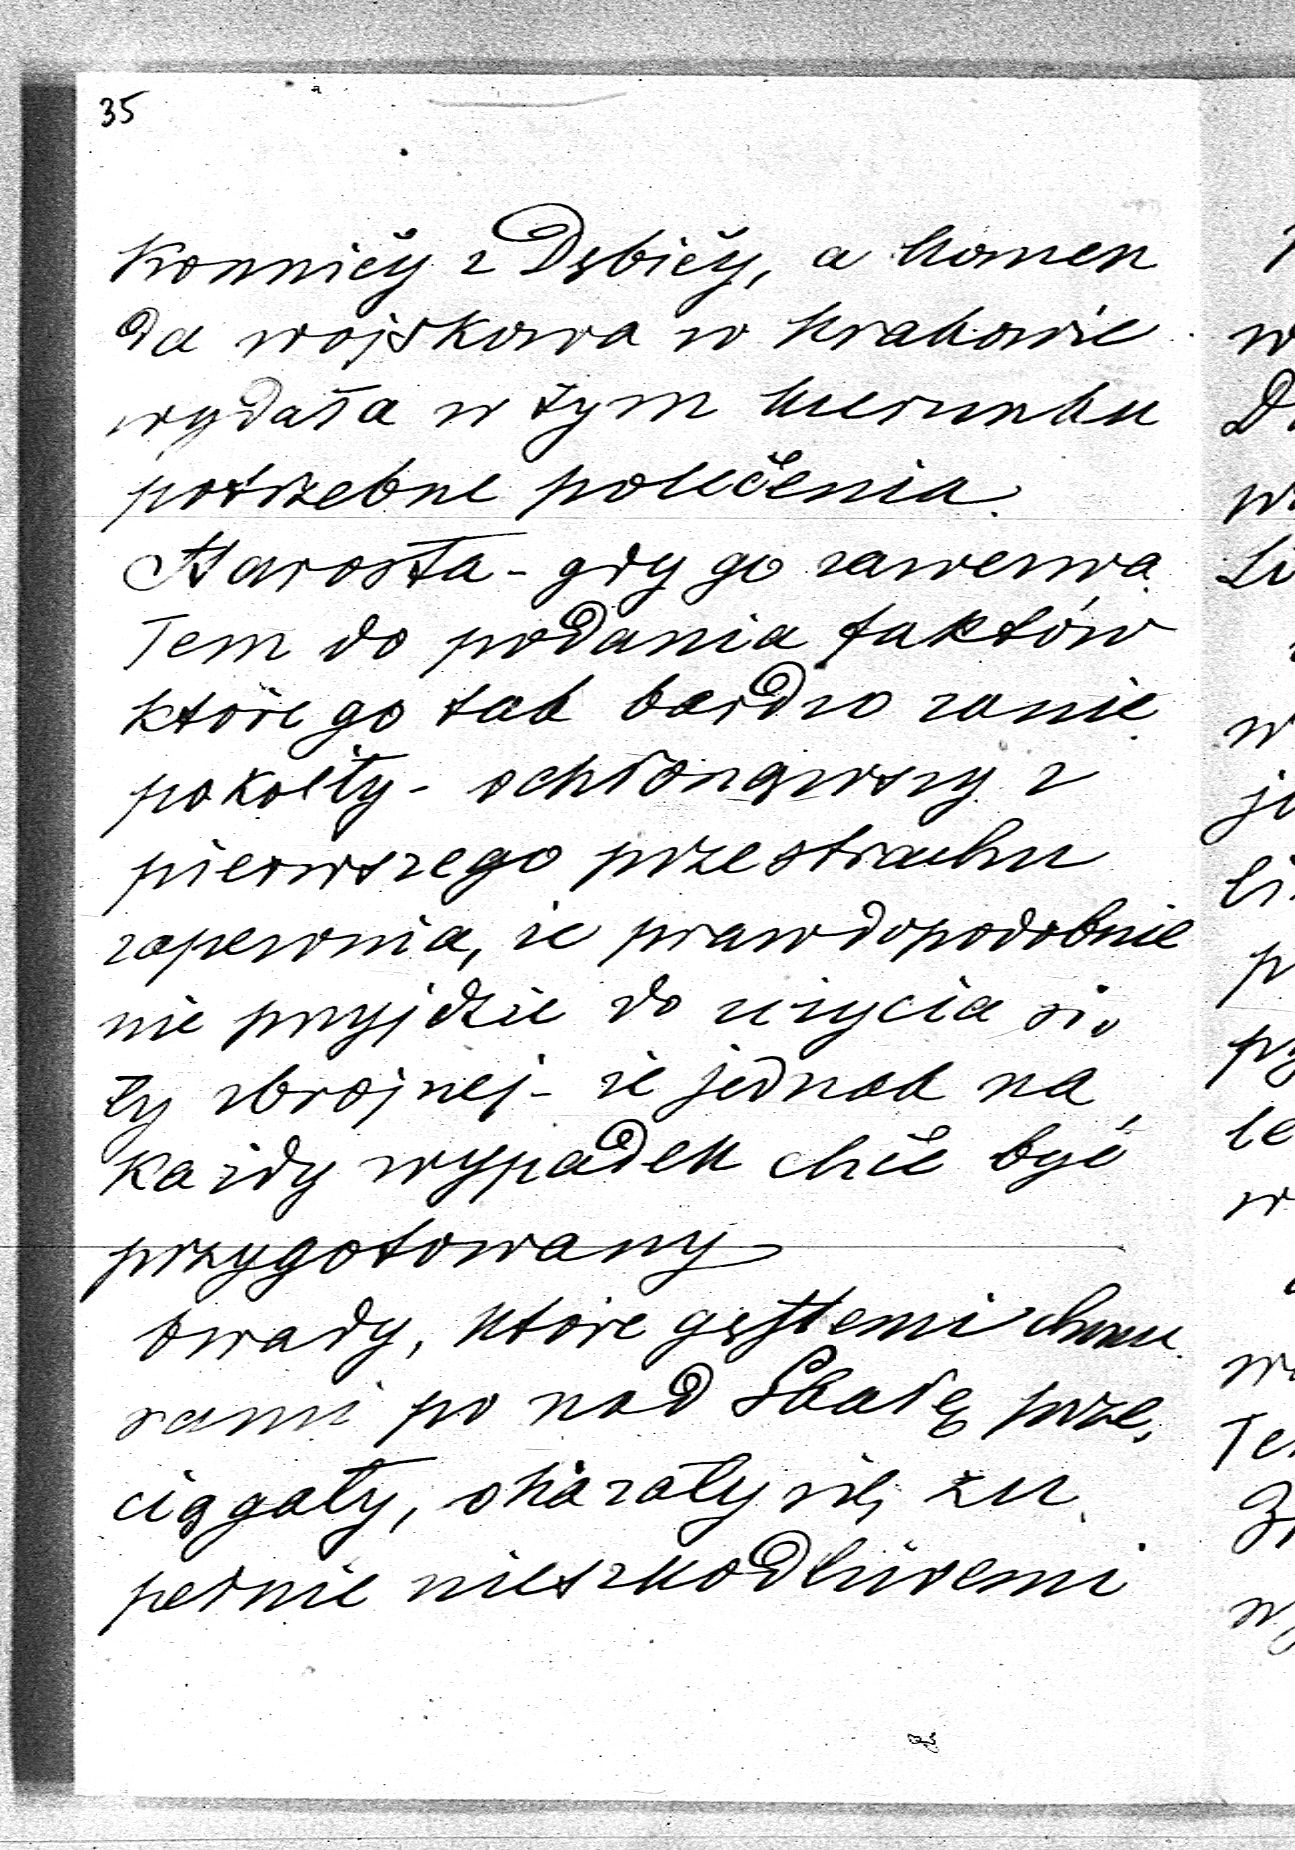 35
konnicy z Dębicy, a komen
da wojskowa w Krakowie
wydała w tym kierunku
potrzebne polecenia.
Starosta - gdy go zawezwa
łem do podania faktów
które go tak bardzo zanie
pokoiły - ochłonąwszy z
pierwszego przestrachu
zapewnia, że prawdopodobnie
nie przyjdzie do użycia si„
ły zbrojnej - że jednak na
każdy wypadek chce być
przygotowany
Owady, które gęstemi chmu
rami po nad Skałę prze„
ciągały, okazały się zu
pełnie nieszkodliwemi